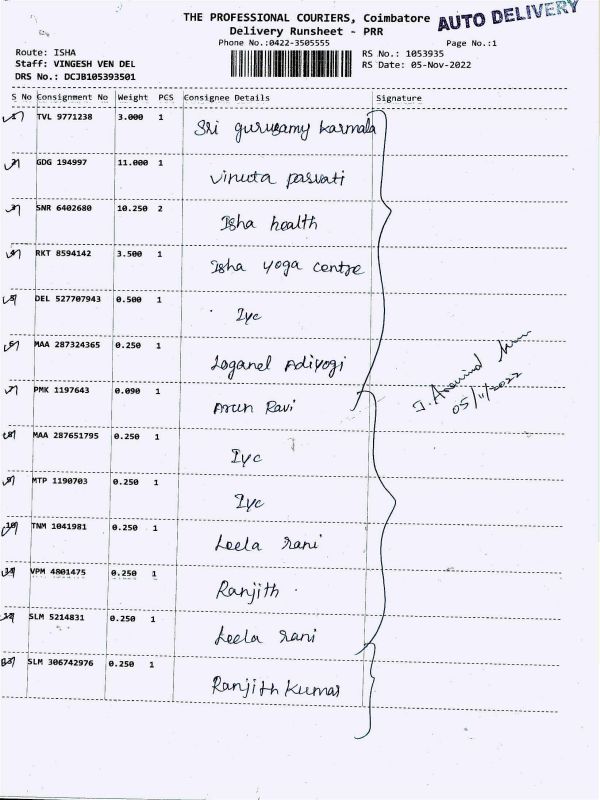 THE PROFESSIONAL COURIERS, Coimbatore
AUTO DELIVERY
Delivery Runsheet - PRR
Phone No.:0422-3505555
Page No.:1
Route: ISHA
RS No.: 1053935
Staff: VINGESH VEN DEL
RS Date: 05-Nov-2022
DRS No.: DCJB105393501
S No Consignment No Weight PCS Consignee Details Signature
1 TVL 9771238 3.000 1
Sri gurusamy karmala
2 GDG 194997 11.000 1
vinuta parvati
3 SNR 6402680 10.250 2
Isha health
4 RKT 8594142 3.500 1
Isha yoga centre
5 DEL 527707943 0.500 1
Iyc
6 MAA 287324365 0.250 1
Loganel Adiyogi
7 PMK 1197643 0.090 1
Arun Ravi
J. Aravind
05/11/2022
8 MAA 287651795 0.250 1
Iyc
9 MTP 1190703 0.250 1
Iyc
10 TNM 1041981 0.250 1
Leela rani
11 VPM 4801475 0.250 1
Ranjith
12 SLM 5214831 0.250 1
Leela rani
13 SLM 306742976 0.250 1
Ranjith Kumar